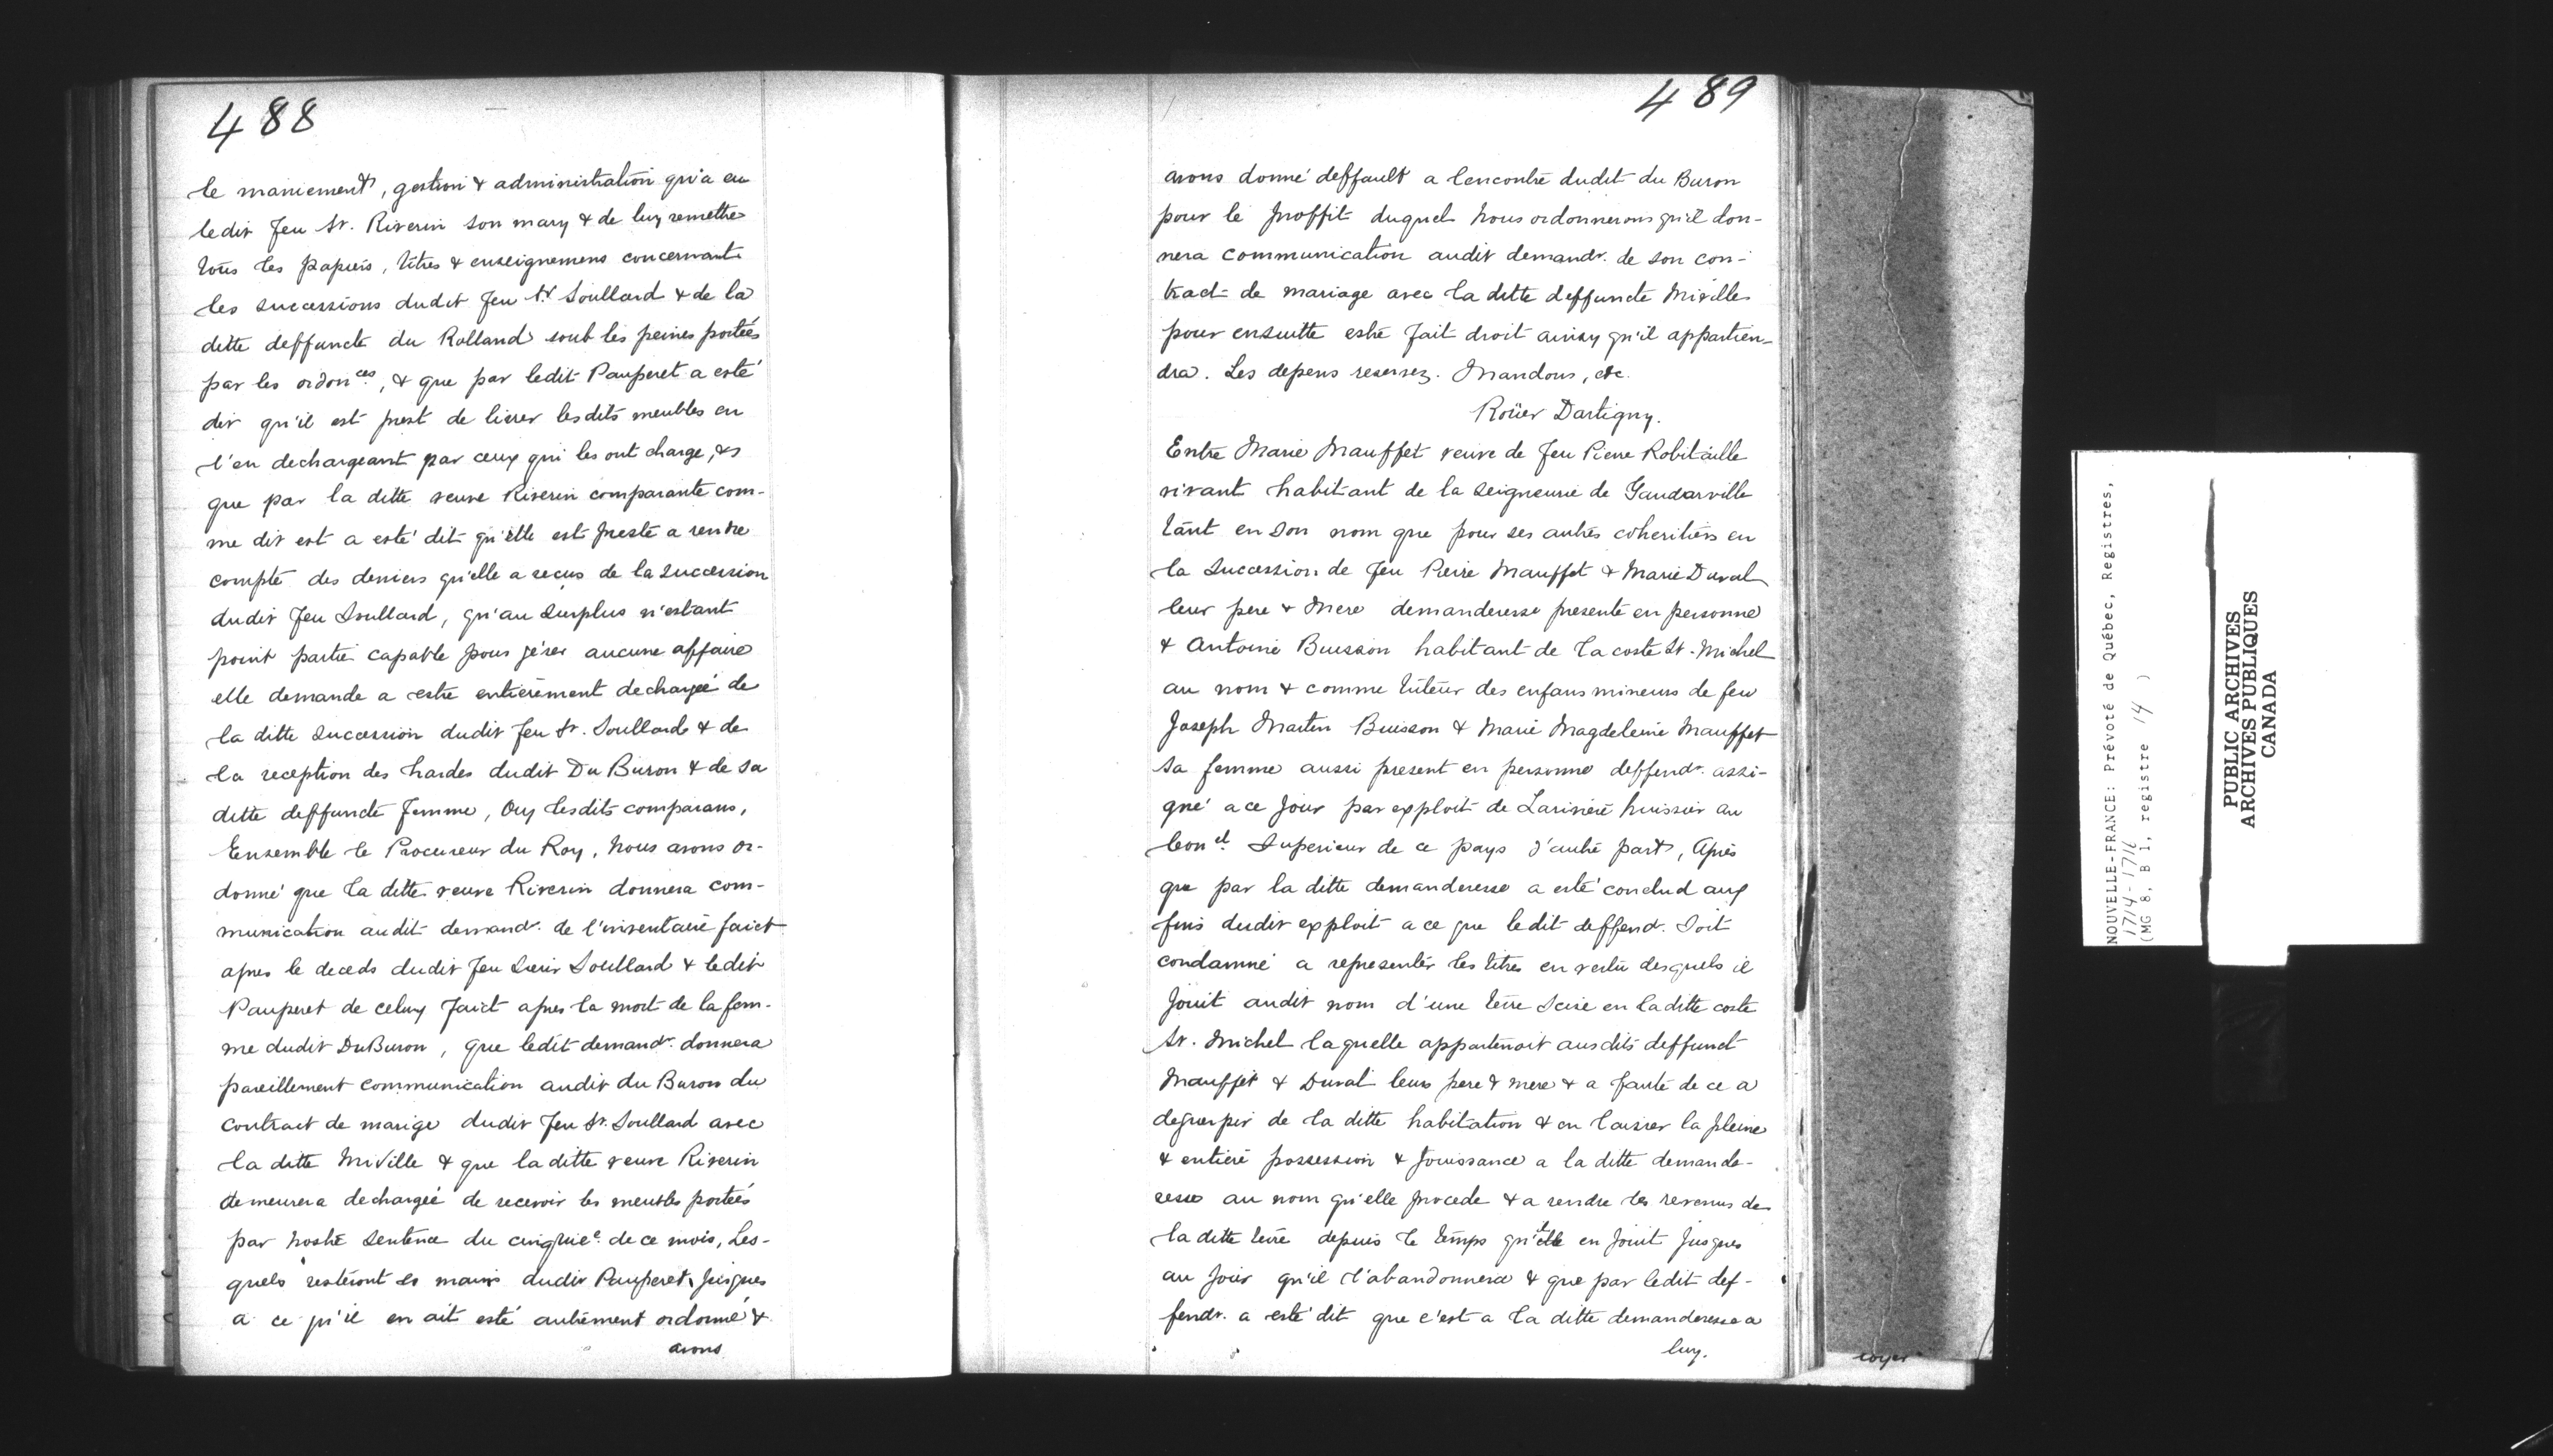 488
le maniement, gestion & administration qu'a eu
ledit feu Sr. Riverin son mary & de luy remettre
tous les papiers, titres & enseignemens concernant
les successions dudit feu Sr Soullard & de la
ditte deffuncte du Rolland soub les peines portées
par les ordonces, & que par ledit Pauperet a esté
dit qu'il est prest de livrer lesdits meubles en
l'en dechargeant par ceux qui les ont charge, &
que par la ditte veuve Riverin comparante com-
me dit est a esté dit qu'elle est preste a rendre
compte des deniers qu'elle a recus de la succession
dudit feu Soullard, qu'au surplus n'estant
point partie capable pour gérer aucune affaire
elle demande a estre entierement dechargée de
la ditte succession dudit feu Sr. Soullard & de
la reception des hardes dudit Du Buron & de sa
ditte deffuncte femme, Ouy lesdits comparans,
Ensemble le Procureur du Roy, Nous avons or-
donné que la ditte veuve Riverin donnera com-
munication audit demandr. de l'inventaire faict
apres le deceds dudit feu Sieur Soullard & ledit
Pauperet de celuy faict apres la mort de la fem-
me dudit DuBuron, que ledit demandr. donnera
pareillement communication audit du Buron du
contract de marige dudit feu Sr. Soullard avec
la ditte Miville & que la ditte veuve Riverin
demeurera dechargée de recevoir les meubles portées
par nostre sentence du cinquiee. de ce mois, Les-
quels resteront es mains dudit Pauperet jusques
a ce qu'il en ait esté autrement ordonné &
avons
489
avons donné deffault a lencontre dudit du Buron
pour le proffit duquel Nous ordonnerons qu'il don-
nera communication audit demandr. de son con-
tract de mariage avec la ditte deffuncte Miville
pour ensuitte estre fait droit ainsy qu'il appartien-
dra. Les depens reservez. Mandons, etc.
Roüer Dartigny.
Entre Marie Mauffet veuve de feu Pierre Robitaille
vivant habitant de la seigneurie de Gaudarville
tant en son nom que pour ses autres coheritiers en
la succession de feu Pierre Mauffet & Marie Duval
leur pere & mere demanderesse presente en personne
& Antoine Buisson habitant de la coste St. Michel
au nom & comme tuteur des enfans mineurs de feu
Joseph Martin Buisson & Marie Magdeleine Mauffet
sa femme aussi present en personne deffendr. assi-
gné a ce jour par exploit de Lariviere huissier au
Conel. Superieur de ce pays d'autre part, Apres
que par la ditte demanderesse a esté conclud aux
fins dudit exploit a ce que ledit deffendr. soit
condamné a representer les titres en vertu desquels il
jouit audit nom d'une terre scise en laditte coste
St. Michel laquelle appartenoit ausdits deffunct
Mauffet & Duval leurs pere & mere & a faute de ce a
deguerpir de la ditte habitation & en laisser la pleine
& entiere possession & jouissance a la ditte demande-
resse au nom qu'elle procede & a rendre les revenus de
la ditte terre depuis le temps qu'elle en jouit jusques
au jour qu'il l'abandonnera & que par ledit def-
fendr. a esté dit que c'est a la ditte demanderesse a
luy.
NOUVELLE-FRANCE: Prévoté de Québec, Registres,
1714-1716
(MG 8, B 1, registre 14 )
PUBLIC ARCHIVES
ARCHIVES PUBLIQUES
CANADA